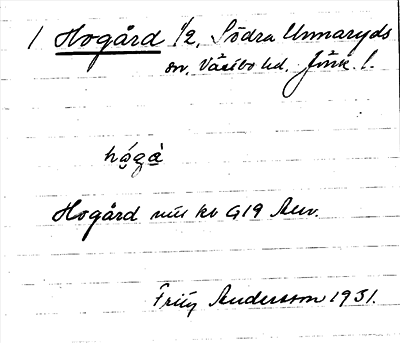 1 Hogård 1/2, Södra Unnaryds
sn, Västbo hd, Jönk. l.
hǫ́gà
Hogård
Fritz Andersson 1931.